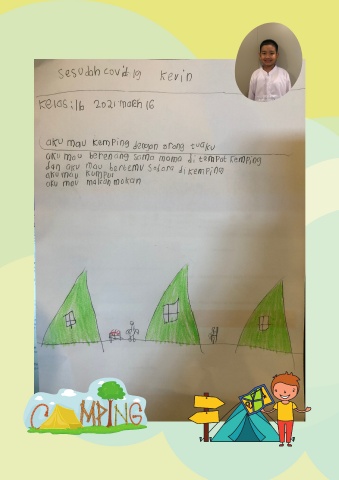 sesudah covid 19 Kevin
Kelas: 1b 2021 march 16
aku mau kemping dengan orang tuaku
aku mau berenang sama mama di tempat kemping
dan aku mau bertemu sodara di kemping
aku mau kumpul
aku mau makan makan
CAMPING